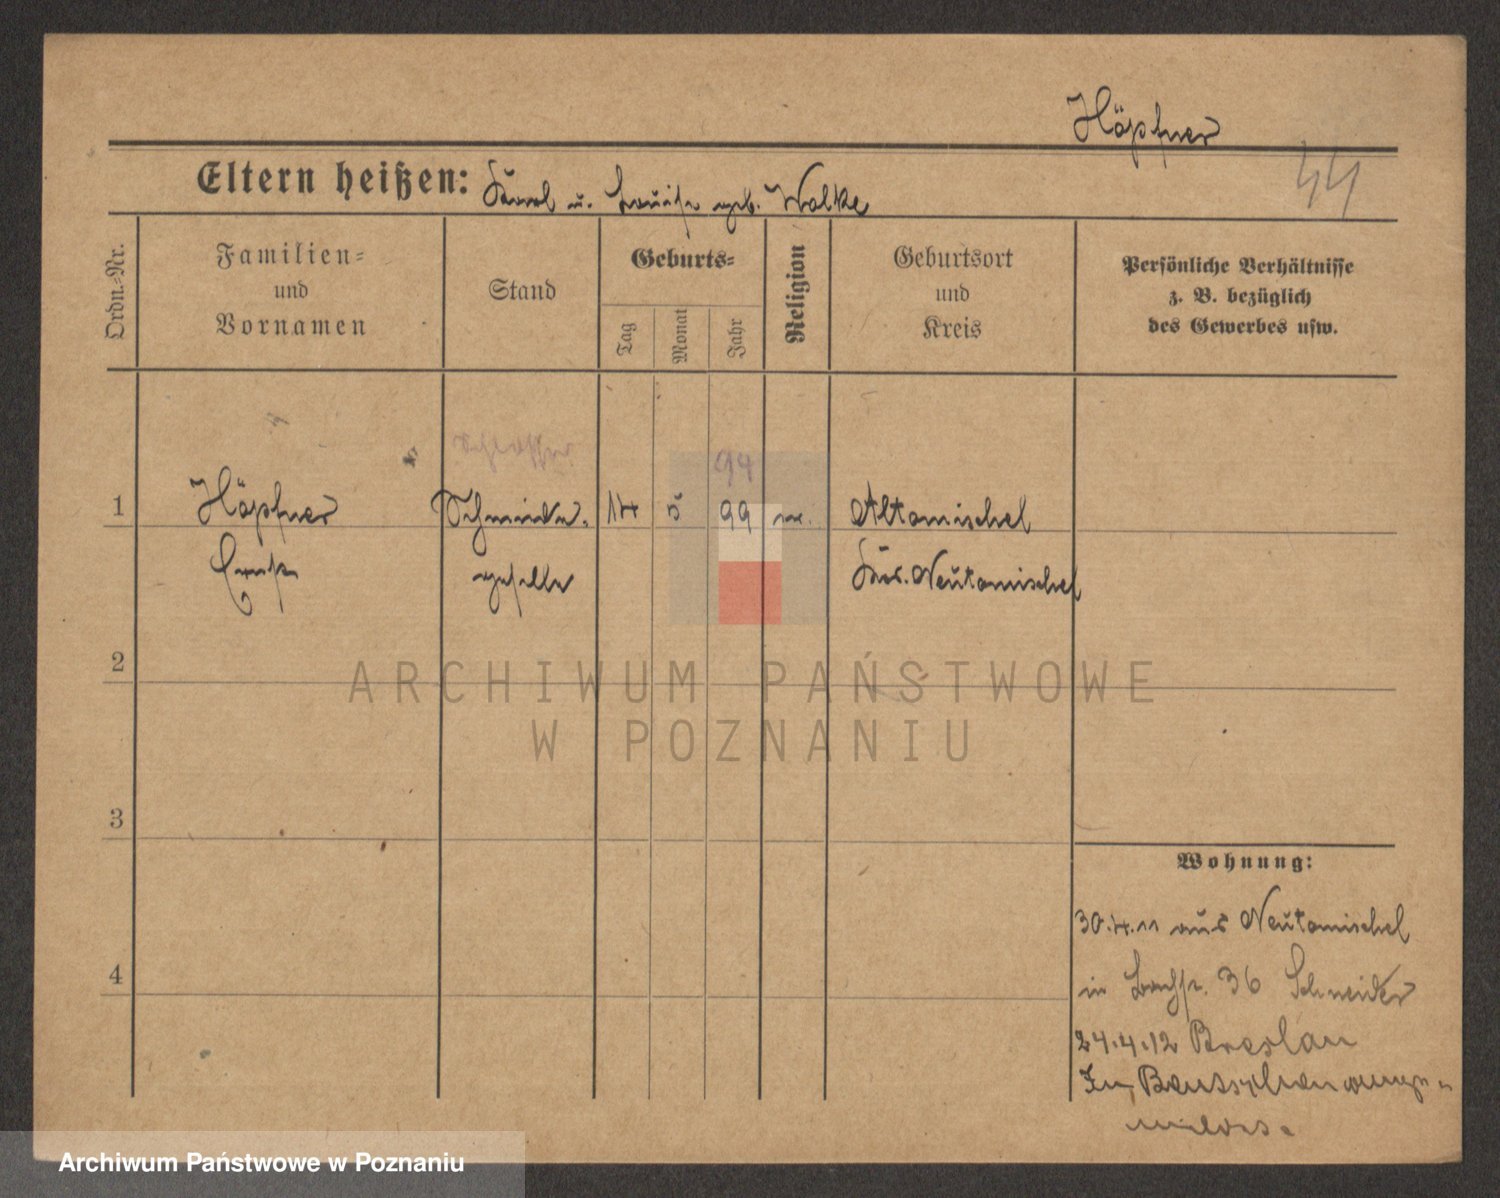 Höpfner
44
Eltern heißen: Karl u. Louise geb. Wolke
Ordn.-Nr.
Familien-
und
Vornamen
Stand
Geburts-
Tag
Monat
Jahr
Religion
Geburtsort
und
Kreis
Persönliche Verhältnisse
z. B. bezüglich
des Gewerbes usw.
Schlosser
94
1 Höpfner Schmiede- 14 5 99 Altomischel
Ernst geselle Krs. Neutomischel
2
ARCHIWUM PAŃSTWOWE
W POZNANIU
3
Wohnung:
30.4.11 aus Neutomischel
4
in 36 Schneider
24.4.12 Breslau
Archiwum Państwowe w Poznaniu